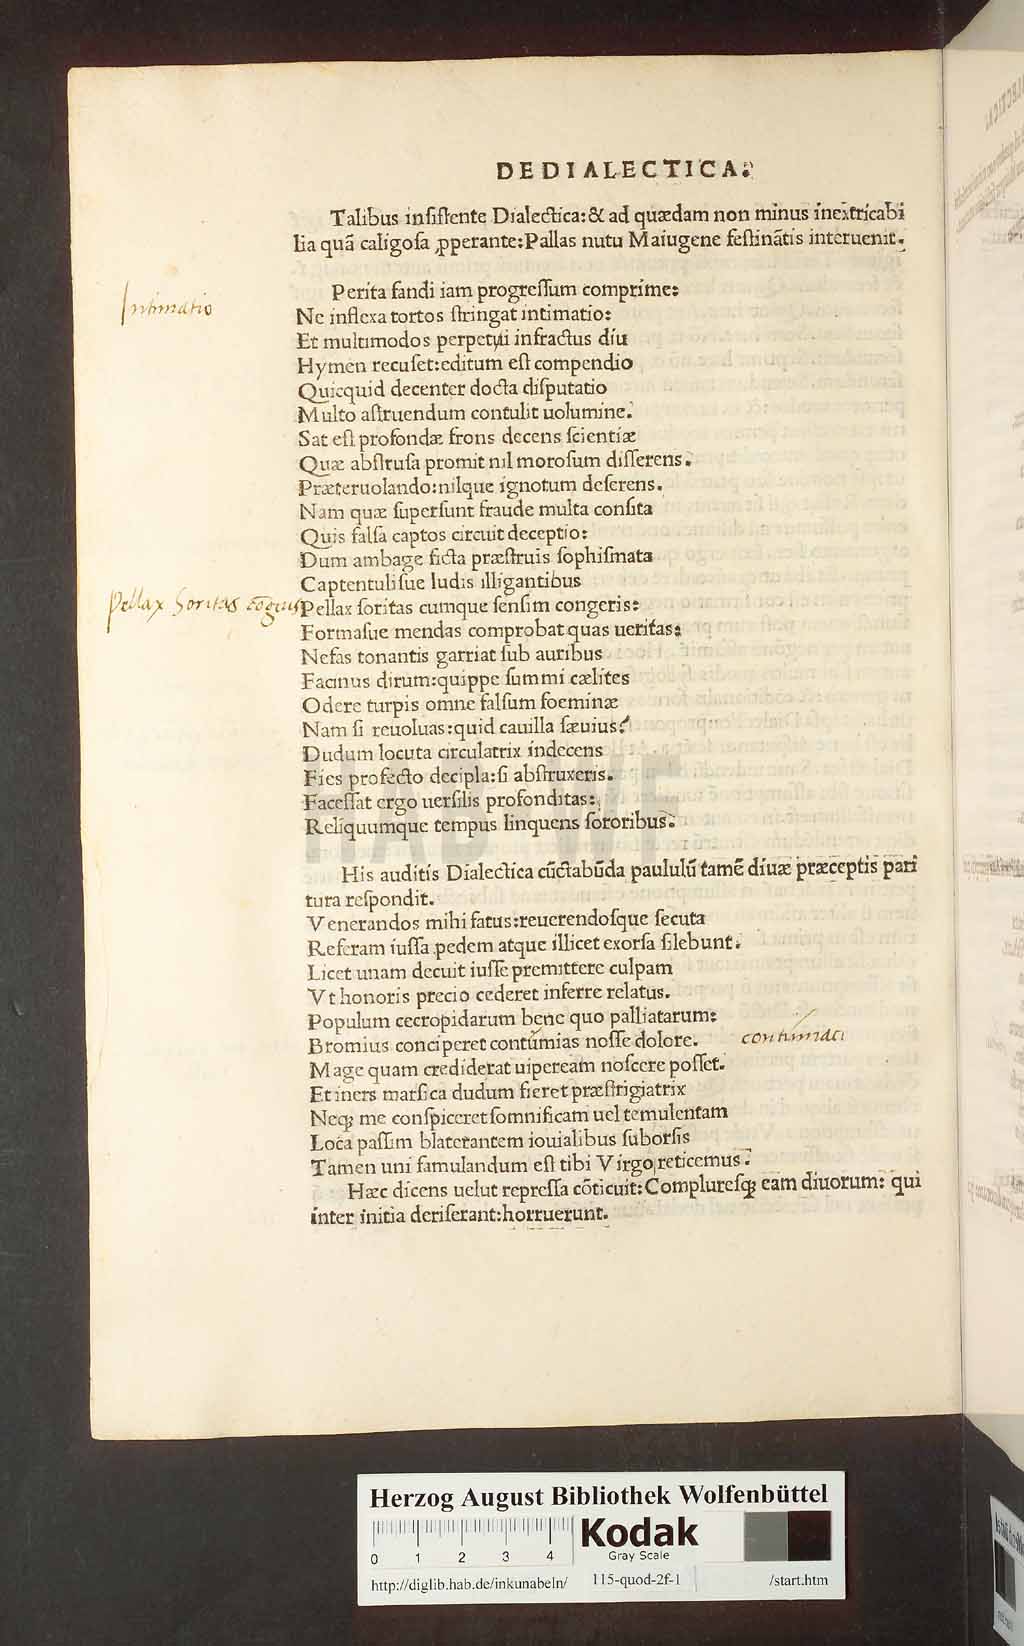 DE DIALECTICA:
Talibus insistente Dialectica: & ad quædam non minus inextricabi
lia quā caligosa ꝓperante: Pallas nutu Maiugene festinātis interuenit.
Intimatio
Perita fandi iam progressum comprime:
Ne inflexa tortos stringat intimatio:
Et multimodos perpetui infractus diu
Hymen recuset: editum est compendio
Quicquid decenter docta disputatio
Multo astruendum contulit uolumine.
Sat est profondæ frons decens scientiæ
Quæ abstrusa promit nil morosum disserens.
Præteruolando: nilque ignotum deserens.
Nam quæ supersunt fraude multa consita
Quis falsa captos circuit deceptio:
Dum ambage ficta præstruis sophismata
Captentulisue ludis illigantibus
Pellax Soritas cōgeris
Pellax soritas cumque sensim congeris:
Formasue mendas comprobat quas ueritas:
Nefas tonantis garriat sub auribus
Facinus dirum: quippe summi cælites
Odere turpis omne falsum foeminæ
Nam si reuoluas: quid cauilla sæuius?
Dudum locuta circulatrix indecens
Fies profecto decipla: si abstruxeris.
Facessat ergo uersilis profonditas:
Reliquumque tempus linquens sororibus.
His auditis Dialectica cūctabūda paululū tamē diuæ præceptis pari
tura respondit.
Venerandos mihi fatus: reuerendosque secuta
Referam iussa pedem atque illicet exorsa silebunt.
Licet unam decuit iusse premittere culpam
Vt honoris precio cederet inferre relatus.
Populum cecropidarum bene quo palliatarum:
Bromius conciperet contumias nosse dolore.
contumaci
Mage quam crediderat uipeream noscere posset.
Et iners marsica dudum fieret præstrigiatrix
Neqꝫ me conspiceret somnificam uel temulentam
Loca passim blaterantem iouialibus suborsis
Tamen uni famulandum est tibi Virgo reticemus.
Hæc dicens uelut repressa cōticuit: Compluresqꝫ eam diuorum: qui
inter initia deriserant: horruerunt.
HAB-WF
Herzog August Bibliothek Wolfenbüttel
0 1 2 3 4
Kodak
Gray Scale
http://diglib.hab.de/inkunabeln/ 115-quod-2f-1 /start.htm